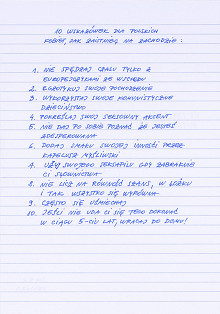 10 WSKAZÓWEK DLA POLSKICH
KOBIET, JAK ZAISTNIEĆ NA ZACHODZIE:
1. NIE SPĘDZAJ CZASU TYLKO Z
EUROPEJCZYKAMI ZE WSCHODU
2. EGZOTYKUJ SWOJE POCHODZENIE
3. WYKORZYSTAJ SWOJE KOMUNISTYCZNE
DZIECIŃSTWO
4. PODKREŚLAJ SWÓJ SEKSOWNY AKCENT
5. NIE DAJ PO SOBIE POZNAĆ ŻE JESTEŚ
ZDESPEROWANA
6. DODAJ SMAKU SWOJEJ INNOŚCI PRZEZ
KAPELUSZ MYŚLIWSKI
7. UŻYJ SWOJEGO SEKSAPILU GDY ZABRAKNIE
CI SŁOWNICTWA
8. NIE LICZ NA RÓWNOŚĆ SZANS, W ŁÓŻKU
I TAK WSZYSTKO SIĘ WYRÓWNA
9. CZĘSTO SIĘ UŚMIECHAJ
10. JEŚLI NIE UDA CI SIĘ TEGO DOKONAĆ
W CIĄGU 5-CIU LAT, WRACAJ DO DOMU!